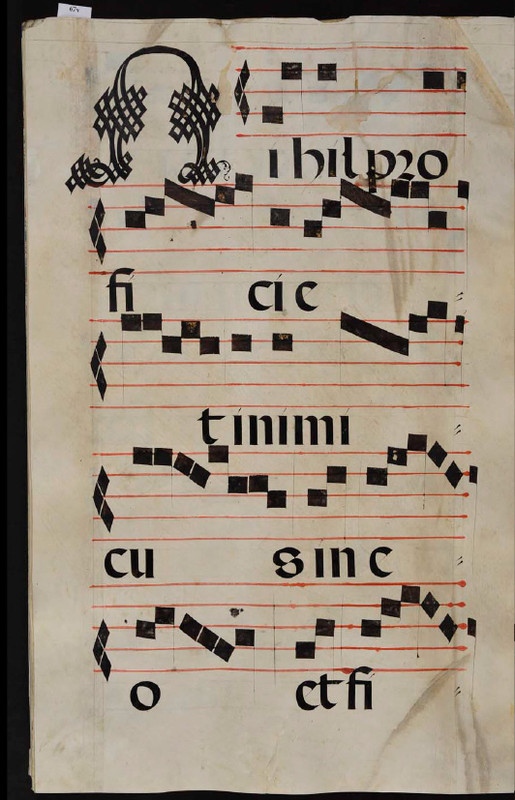 Nihil pro
fi cie
t inimi
cu s in e
o et fi